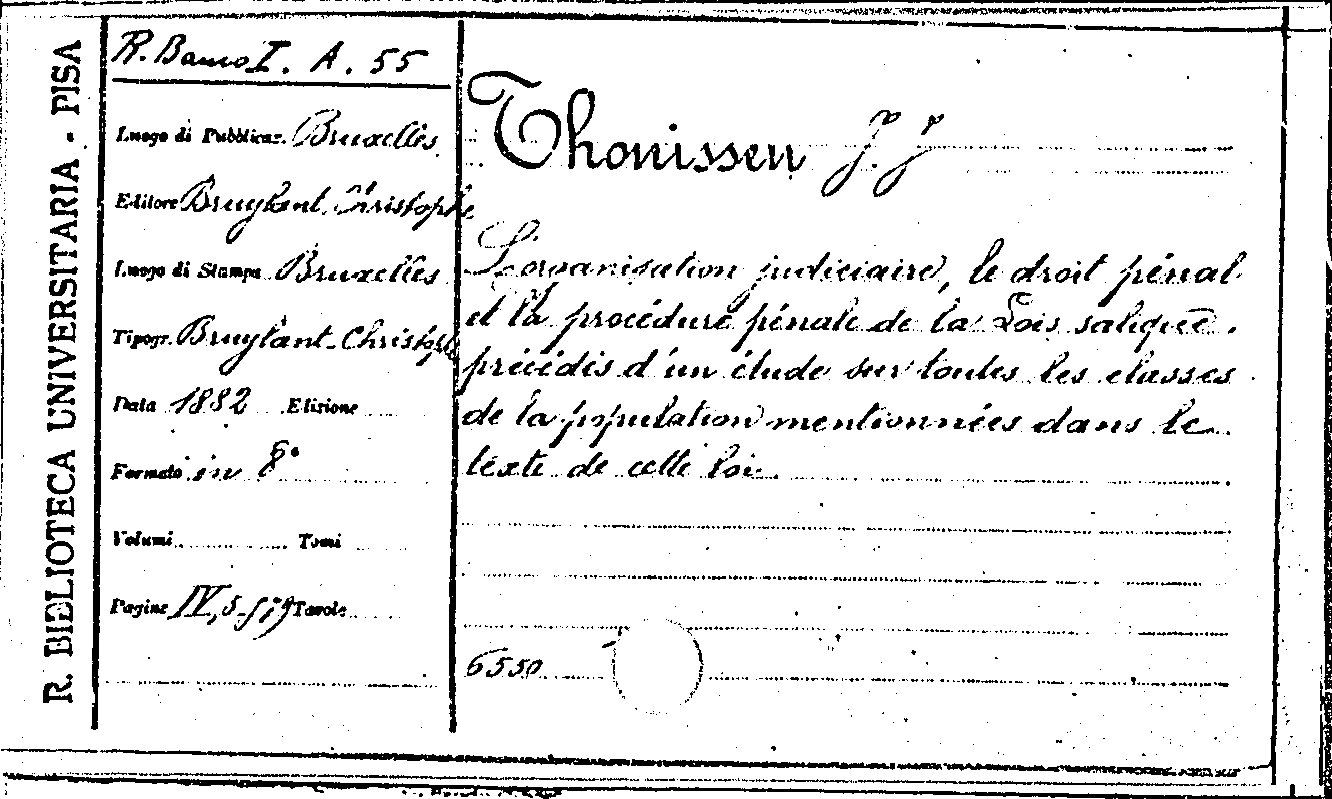 R. BIBLIOTECA UNIVERSITARIA - PISA
R. Banco I. A. 55
Luogo di Pubblicaz. Bruxelles
Editore Bruylant. Christophe
Luogo di Stampa Bruxelles
Tipogr. Bruylant. Christophe
Data 1882 Edizione
Formato in 8°
Volumi Tomi
Pagine IV, 5- Tavole
Thonissen J. J
L'organisation judiciaire, le droit pénal
et la procédure pénale de la Lois salique.
précédis d'un étude sur toutes les classes
de la population mentionnées dans le
texte de cette loi
6550